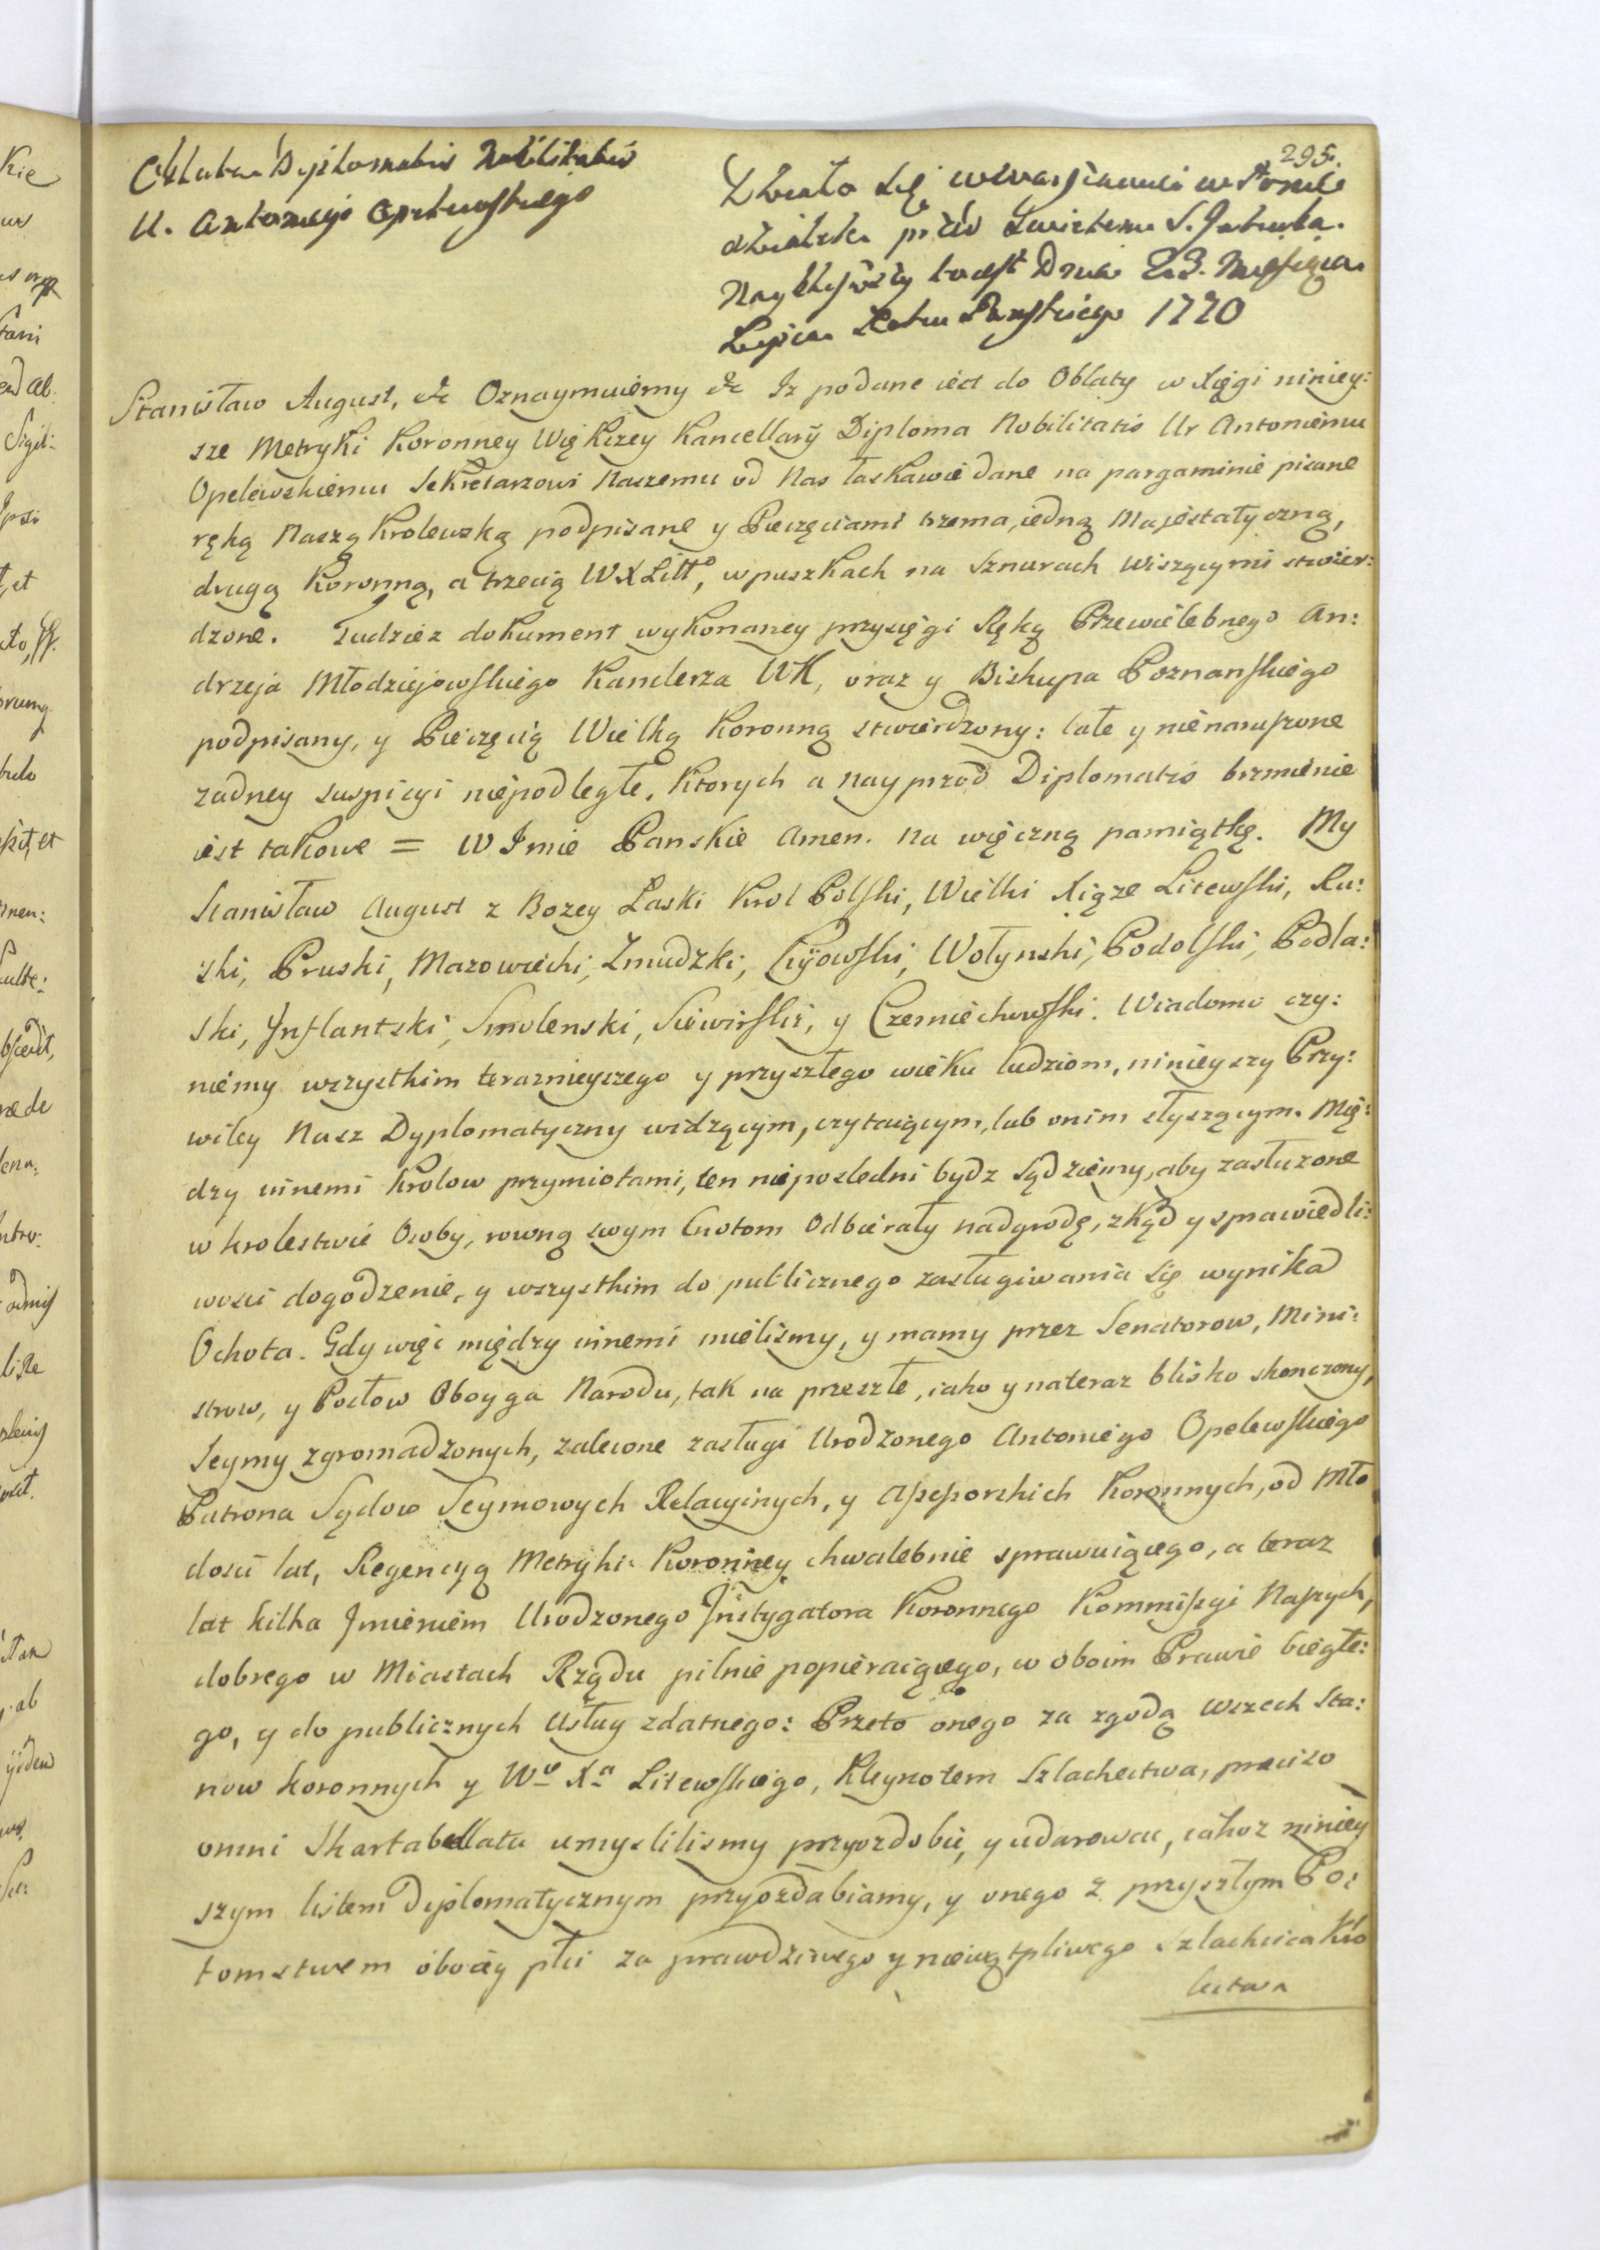 295.
Oblata Diplomatis Nobilitatis
U. Antoniego Opelewskiego
Działo się w Warszawie w Ponie
działek przed Swietem S. Jakuba
Nayblizszy to iest Dnia 23. Miesiąca
Lipca Roku Panskiego 1770
Stanisław August, &c Oznaymuiemy &c Iz podane iest do Oblaty w Xięgi niniey:
sze Metryki Koronney Większey Kancellaryi Diploma Nobilitatis Ur Antoniemu
Opelewskiemu Sekretarzowi Naszemu od Nas łaskawie dane na pargaminie pisane
ręką Naszą Krolewską podpisane y Pieczęciami trzema, iedną Majestatyczną,
drugą Koronną, a trzecią WXLitto, w puszkach na sznurach wiszącymi stwier:
dzone. Tudziez dokument wykonaney przysięgi Ręką Przewielebnego An:
drzeja Młodziejowskiego Kanclerza WK, oraz y Biskupa Poznanskiego
podpisany, y Pieczęcią Wielką Koronną stwierdzony: całe y nienaruszone
zadney suspicyi niepodległe, Ktorych a nayprzod Diplomatis brzmienie
iest takowe = W Imie Panskie Amen. Na wieczną pamiątkę. My
Stanisław August z Bozey Łaski Krol Polski, Wielki Xiąze Litewski, Ru:
ski, Pruski, Mazowiecki, Zmudzki, Kyiowski, Wołynski, Podolski, Podla:
ski, Inflantski, Smolenski, Siewirski, y Czerniechowski. Wiadomo czy:
niemy wszystkim terazniejszego y przyszłego wieku ludziom, ninieyszy Przy:
wiley Nasz Dyplomatyczny widzącym, czytaiącym, lub onim słyszącym. Mię:
dzy innemi Krolow przymiotami, ten nieposledni bydz sądziemy, aby zasłuzone
w krolestwie Osoby, rowną swym Cnotom Odbierały nadgrodę, zkąd y sprawiedli:
wosci dogodzenie, y wszystkim do publicznego zasługiwania się wynika
Ochota. Gdy więc między innemi mieliśmy, y mamy przez Senatorow, Mini:
strow, y Posłow Oboyga Narodu, tak na przeszłe, iako y na teraz blisko skonczony,
Seymy zgromadzonych, zalecone zasługi Urodzonego Antoniego Opelewskiego
Patrona Sądow Seymowych Relacyinych, y Assessorskich Koronnych, od Mło
dosci lat, Regencyą Metryki Koronney chwalebnie sprawuiącego, a teraz
lat kilka Imieniem Urodzonego Instygatora Koronnego Kommissyi Naszych,
dobrego w Miastach Rządu pilnie popieraiącego, w oboim Prawie biegłe:
go, y do publicznych Usług zdatnego: Przeto onego za zgodą wszech Sta:
now koronnych y Wo Xa Litewskiego, Kleynotem Szlachectwa, praeciso
omni Skartabellatu umyslilismy przyozdobic, y udarowac, iakoz niniey
szym listem Dyplomatycznym przyozdabiamy, y onego z przyszłym Po:
tomstwem oboiey płci za prawdziwego y niewątpliwego Szlachcica Kro
lestwa